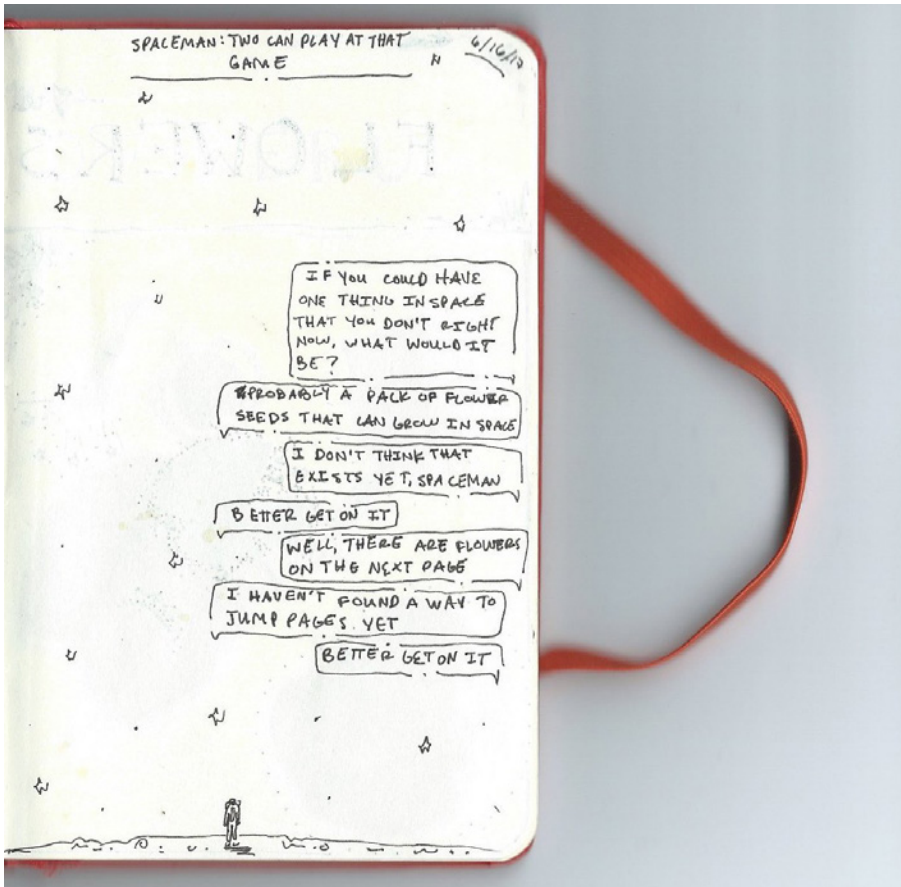 SPACEMAN: TWO CAN PLAY AT THAT
GAME
6/16/17
FLOWERS
IF YOU COULD HAVE
ONE THING IN SPACE
THAT YOU DON'T RIGHT
NOW, WHAT WOULD IT
BE?
PROBABLY A PACK OF FLOWER
SEEDS THAT CAN GROW IN SPACE
I DON'T THINK THAT
EXISTS YET, SPACEMAN
BETTER GET ON IT
WELL, THERE ARE FLOWERS
ON THE NEXT PAGE
I HAVEN'T FOUND A WAY TO
JUMP PAGES YET
BETTER GET ON IT